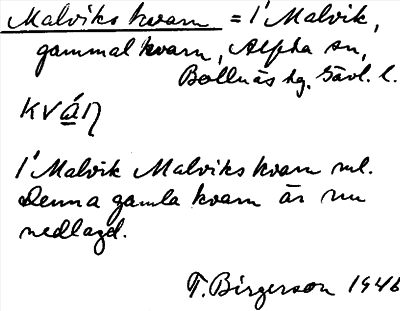 Malviks kvarn = i Malvik,
gammal kvarn, Alpha sn,
Bollnäs hg. Gävl. l.
kván
I Malvik Malviks kvarn ml.
Denna gamla kvarn är nu
nedlagd.
T. Birgerson 1946